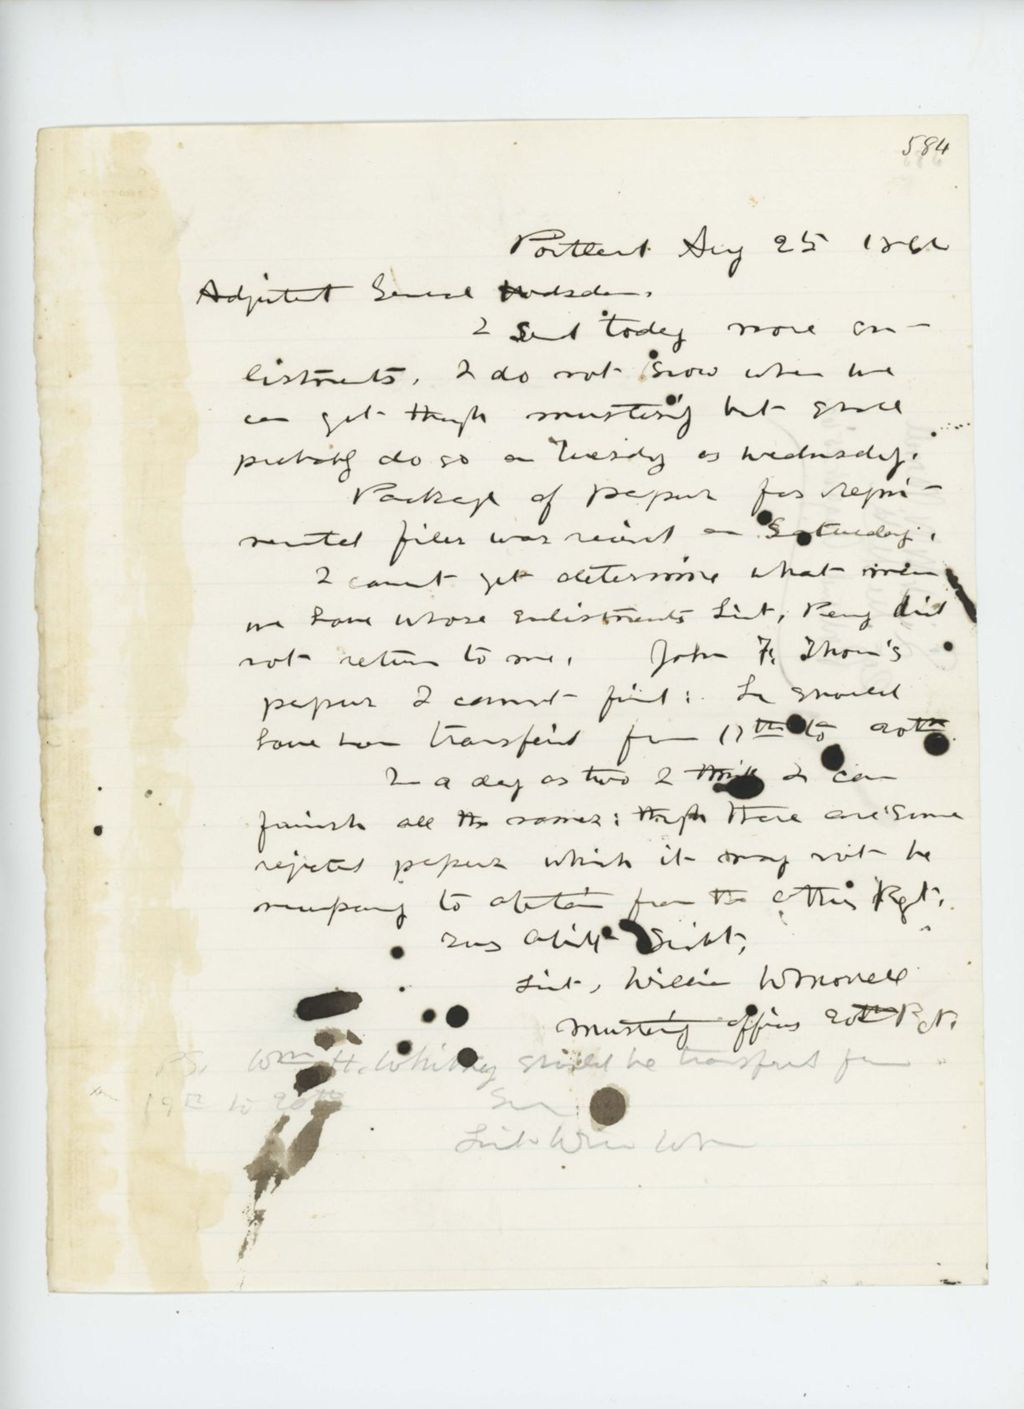 584
Portland Aug 25 1862
Adjutant General Hodsdon.
I send today more en-
listments. I do not know when we
can get through mustering but shall
probably do so on Tuesday or Wednesday.
Package of papers for regi-
mental files was received on Saturday.
I cannot yet determine what men
we have whose enlistments Lieut. did
not return to me. John F. Thom's
papers I cannot find: he should
have been transferred from 17th to 20th.
In a day or two I think I can
finish all the names: though there are some
rejected papers which it may not be
necessary to obtain from the other Regt.
Your Obdt Servt,
Lieut. William
Mustering officer 20th Rgt.
P.S. Wm H. Whitney should be transferred from
19th to 20th
Lieut